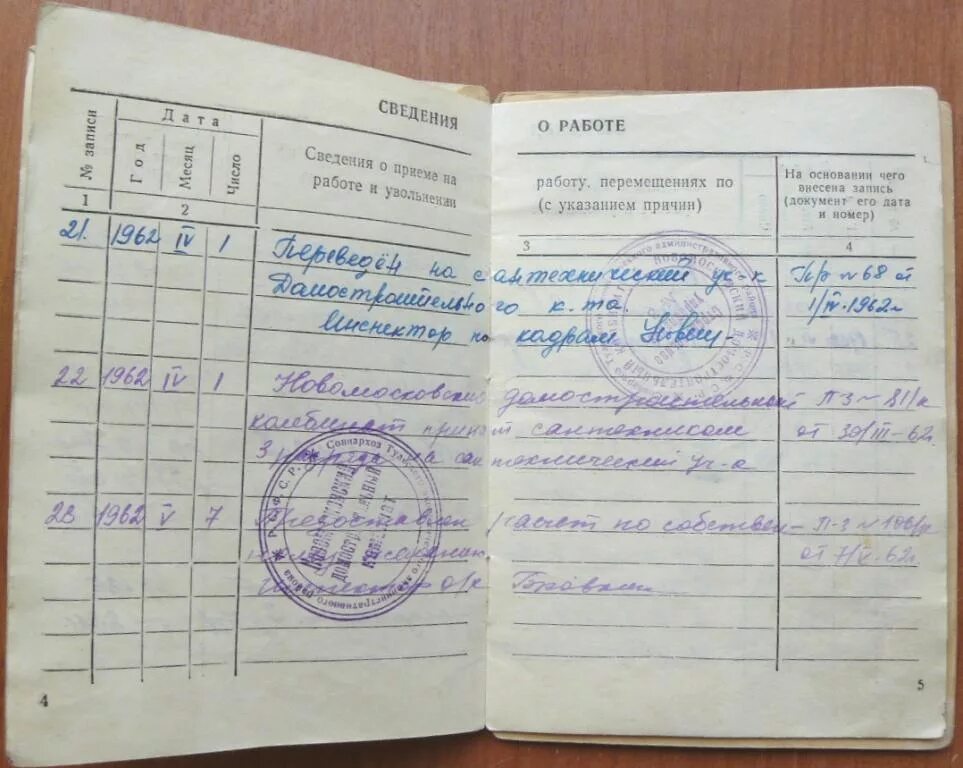 СВЕДЕНИЯ О РАБОТЕ
№ записи
Дата
Год
Месяц
Число
Сведения о приеме на работу, перемещениях по
работе и увольнении (с указанием причин)
На основании чего
внесена запись
(документ его дата
и номер)
1 2 3 4
21. 1962 IV 1 Переведён на сантехнический уч-к Пр № 68 от
Домостроительного к.та. 1/IV-1962г
Инспектор по кадрам
22 1962 IV 1 Новомосковский домостроительный П-3 № 81/к
комбинат принят сантехником от 30/III-62г.
3 разряда на сантехнический уч-к
23 1962 V 7 Предоставлен расчет по собствен- П-3 №
ному желанию от 7/V-62г.
Инспектор о/к
Р.С.Ф.С.Р. Совнархоз Тульского административного района
НОВОМОСКОВСКИЙ
ДОМОСТРОИТЕЛЬНЫЙ
КОМБИНАТ
4
5